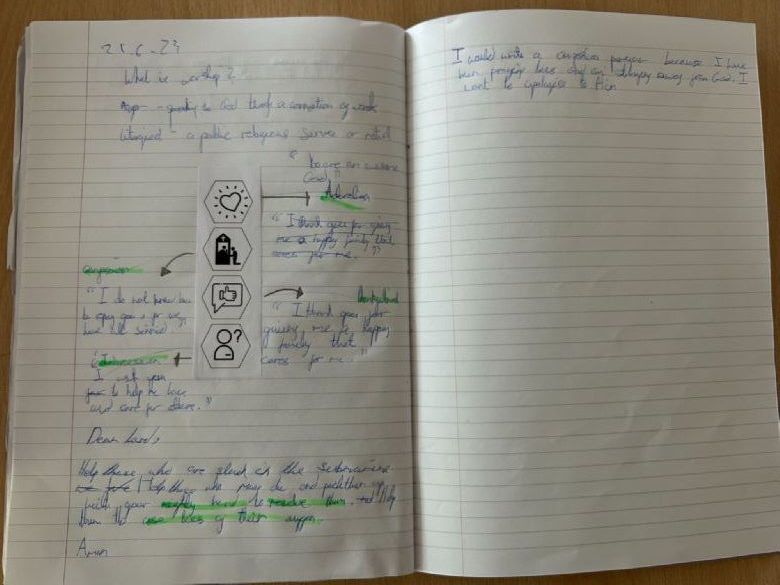 21.6.23
What is worship?
- speaking to God through a connection of words
Liturgical - a public religious service or ritual
"You are an awesome
God"
Adoration
"I thank you for giving
me a happy family that
cares for me."
Confession
"I do not know how
to repay you for
Thanksgiving
"I thank you for
giving me a happy
family that
cares for me."
Intercession
I ask you
to help me love
and care for others."
Dear Lord,
Help those who are stuck in the submarine
Help those who may die and pick them up
with your mighty hand to resolve them. Help
them the of their oxygen.
Amen
I would write a confession prayer because I have
been praying less and am straying away from God. I
want to apologise to Him